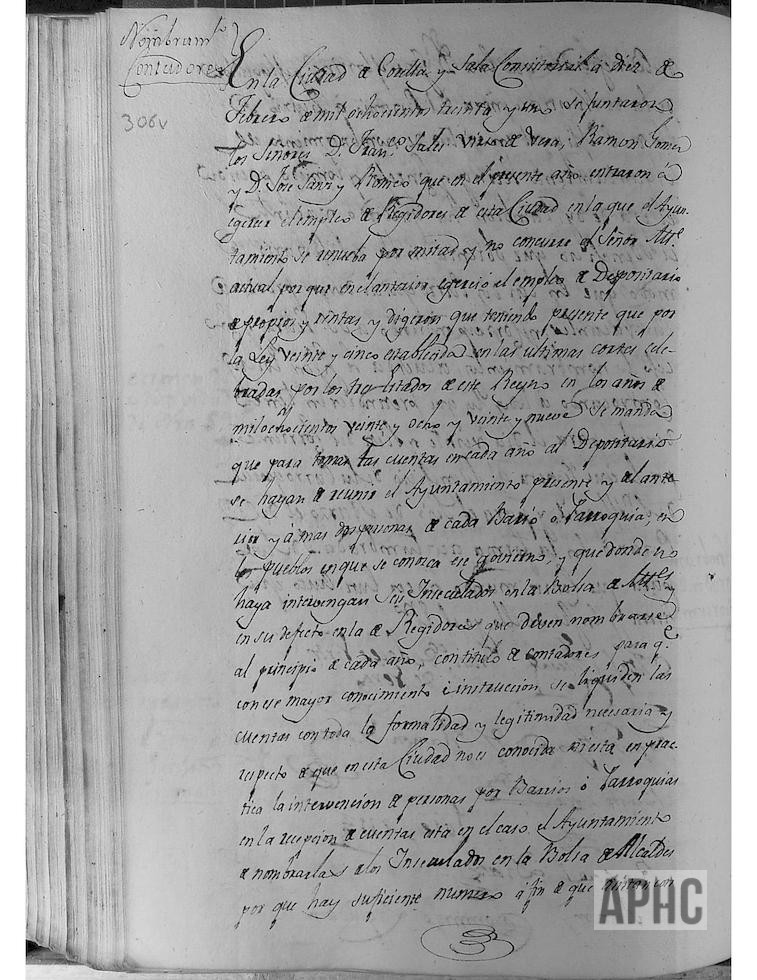 Nombram.to
Contadores
306v
En la Ciudad de Corella y Sala Consistorial a diez de
Febrero de mil ochocientos treinta y un se juntaron
los Señores D. Fran.co Sales Virto de Vera, Ramon Gomez
y D. José Sanz y Romeo que en el presente año entraron á
egercer el empleo de Regidores de esta Ciudad en la que el Ayun-
tamiento se renueba por mitad y no concurre el Señor Alc.e
actual por que en el anterior egerció el empleo de Depositario
de propios y rentas y digeron que teniendo presente que por
la Ley veinte y cinco establecida en las ultimas cortes cele-
bradas por los tres Estados de este Reyno en los años de
mil ochocientos veinte y ocho y veinte y nueve se manda
que para tomar las cuentas en cada año al Depositario
se hayan de reunir el Ayuntamiento presente y el ante-
rior y á mas dos personas de cada Barrio o Parroquia, en
los pueblos en que se conozca ese govierno, y que donde no
haya intervengan seis Inseculados en la Bolsa de Alc.es y
en su defecto en la de Regidores que deven nombrarse
al principio de cada año, con titulo de contadores para q.e
con ese mayor conocimiento e instruccion se liquiden las
cuentas con toda la formalidad y legitimidad necesaria y
respecto de que en esta Ciudad no es conocida ni está en prac-
tica la intervención de personas por Barrios ó Parroquias
en la recepcion de cuentas esta en el caso el Ayuntamiento
de nombrarlas de los Inseculados en la Bolsa de Alcaldes
por que hay suficiente numero á fin de que asistan con
APHC